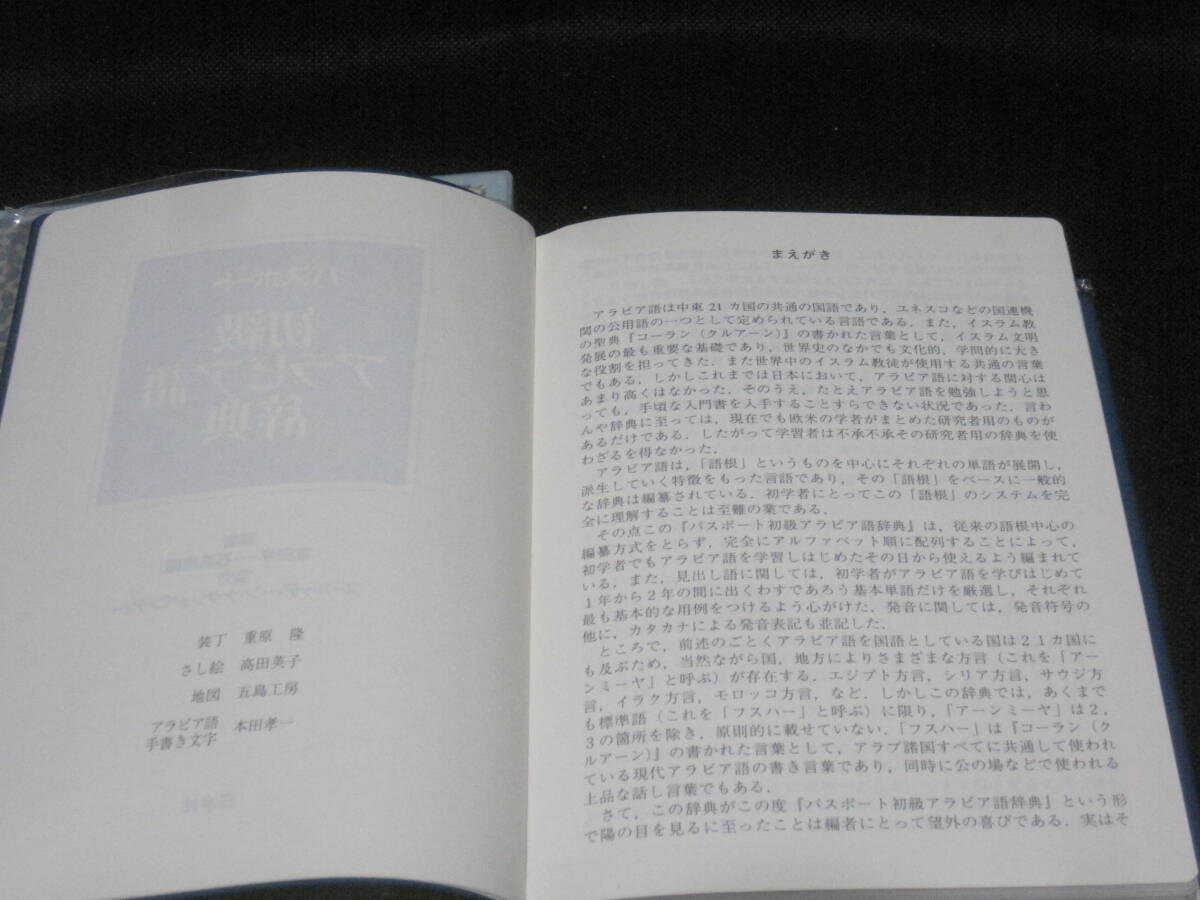 装丁 重原 隆
さし絵 高田英子
地図 五島工房
アラビア語
手書き文字 本田孝一
まえがき
アラビア語は中東21カ国の共通の国語であり，ユネスコなどの国連機
関の公用語の一つとして定められている言語である．また，イスラム教
の聖典『コーラン（クルアーン）』の書かれた言葉として，イスラム文明
発展の最も重要な基礎であり，世界史のなかでも文化的，学問的に大き
な役割を担ってきた．また世界中のイスラム教徒が使用する共通の言葉
でもある．しかしこれまでは日本において，アラビア語に対する関心は
あまり高くはなかった．そのうえ，たとえアラビア語を勉強しようと思
っても，手頃な入門書を入手することすらできない状況であった．言わ
んや辞典に至っては，現在でも欧米の学者がまとめた研究者用のものが
あるだけである．したがって学習者は不承不承その研究者用の辞典を使
わざるを得なかった．
アラビア語は，「語根」というものを中心にそれぞれの単語が展開し，
派生していく特徴をもった言語であり，その「語根」をベースに一般的
な辞典は編纂されている．初学者にとってこの「語根」のシステムを完
全に理解することは至難の業である．
その点この『パスポート初級アラビア語辞典』は，従来の語根中心の
編纂方式をとらず，完全にアルファベット順に配列することによって，
初学者でもアラビア語を学習しはじめたその日から使えるよう編まれて
いる．また，見出し語に関しては，初学者がアラビア語を学びはじめて
1年から2年の間に出くわすであろう基本単語だけを厳選し，それぞれ
最も基本的な用例をつけるよう心がけた．発音に関しては，発音符号の
他に，カタカナによる発音表記も並記した．
ところで，前述のごとくアラビア語を国語としている国は21カ国に
も及ぶため，当然ながら国，地方によりさまざまな方言（これを「アー
ンミーヤ」と呼ぶ）が存在する．エジプト方言，シリア方言，サウジ方
言，イラク方言，モロッコ方言，など．しかしこの辞典では，あくまで
も標準語（これを「フスハー」と呼ぶ）に限り，「アーンミーヤ」は2，
3の箇所を除き，原則的に載せていない．「フスハー」は『コーラン（ク
ルアーン）』の書かれた言葉として，アラブ諸国すべてに共通して使われ
ている現代アラビア語の書き言葉であり，同時に公の場などで使われる
上品な話し言葉でもある．
さて，この辞典がこの度『パスポート初級アラビア語辞典』という形
で陽の目を見るに至ったことは編者にとって望外の喜びである．実はそ